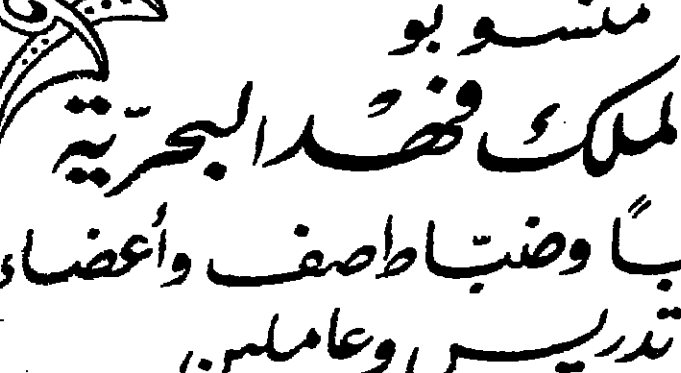 منسوبو
لملك فهد البحريّة
باً وضبّاط صف وأعضاء
تدريس وعاملين